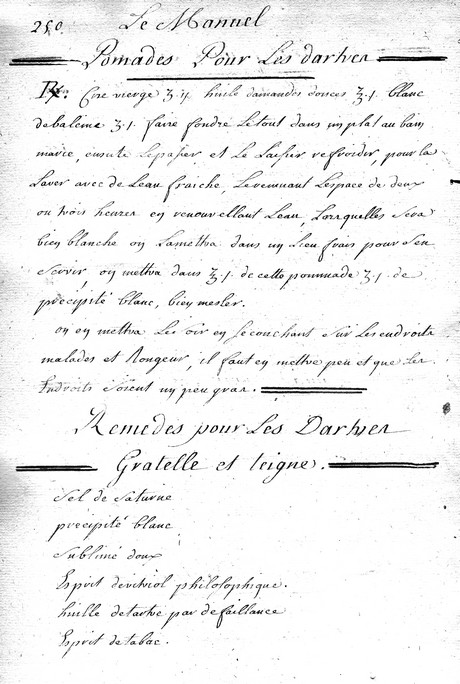 250
Le Manuel
Pomades Pour Les dartres
Rx. Cire vierge ʒ.ij huile damandes douces ℥.j. blanc
debaleine ʒ.j. faire fondre Letout dans un plat au bain
marie, ensuite Lepasser et Le Laisser refroider, pour la
Laver avec de Leau fraiche, Leremuant Lespace de deux
ou trois heures en renouvellant Leau, Lorsquelles sera
bien blanche on Lamettra dans un Lieu frais pour sen
servir, on mettra dans ℥.j. de cette pommade ʒ.j. de
précipité blanc, bien mesler.
on en mettra Le soir en se couchant sur Les endroits
malades et Rongeur, il faut en mettre peu et que Les
Endroits soient un peu gras.
Remedes pour Les Dartres
Gratelle et teignes.
Sel de Saturne
précipité blanc
Sublimé doux
Esprit devitriol philosophique.
huille detartre par defaillance
Esprit detabac.